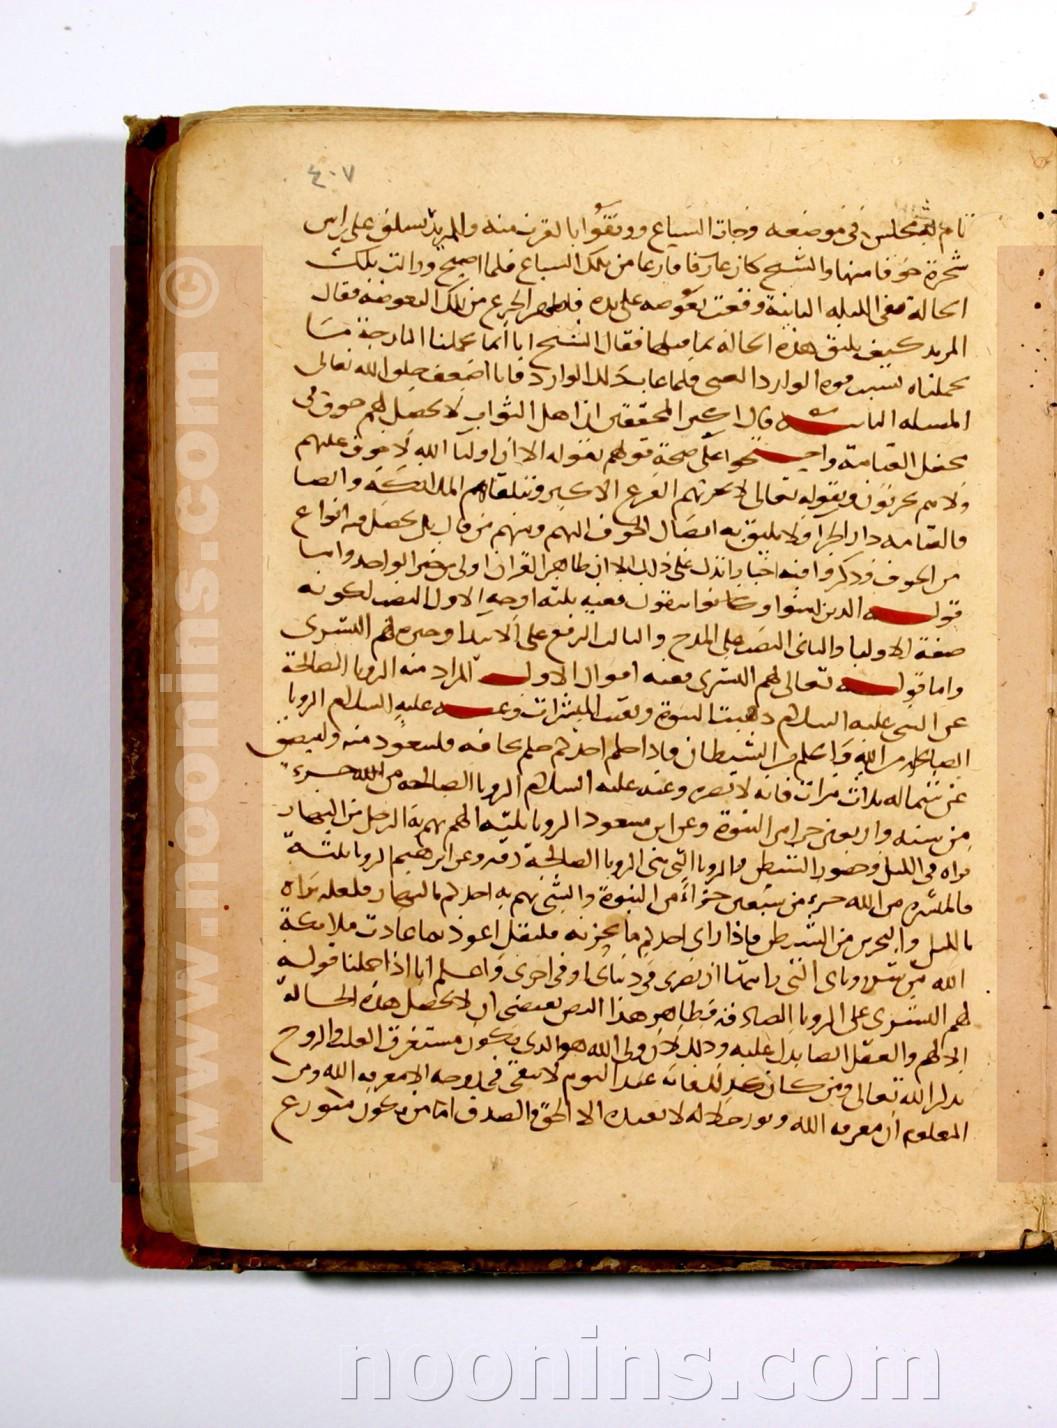 ٤٠٧
تام فجلس فى موضعه وجات السباع ووقفوا بالقرب منه والمريد تسلق على راس
شجرة خوفا منها والشيخ كان عارفا فارغا من تلك السباع فلما اصبح وزالت تلك
الحالة ففى الليله الثانية وقعت بعوضه على يده فاظهر الجزع من تلك البعوضة فقال
المريد كيف يليق هذه الحالة بما قبلها فقال الشيخ انا انما تحملنا البارحة ما
تحملناه بسبب قوة الوارد الغيبى فلما غاب ذلك الوارد فانا اضعف خلق الله تعالى
المسله الثالثه قال اكثر المحققين ان اهل الثواب لا يحصل لهم خوف فى
محفل القيامة واحتجوا على صحة قولهم بقوله الا ان اوليا الله لا خوف عليهم
ولا هم يحزنون وبقوله تعالى لا يحزنهم الفزع الاكبر وتتلقاهم الملائكة وايضا
فالقيامه دار الجزا فلا يليق به ايصال الخوف اليهم ومنهم من قال بل يحصل فيه انواع
من الخوف وذكروا فيه اخبارا تدل على ذلك الا ان ظاهر القران اولى من خبر الواحد واما
قوله الذين امنوا وكانوا يتقون ففيه ثلثه اوجه الاول النصب لكونه
صفة الاوليا والثانى النصب على المدح والثالث الرفع على الابتدا وخبره لهم البشرى
واما قوله تعالى لهم البشرى ففيه اقوال الاول المراد منه الرويا الصالحة
عن النبى عليه السلام ذهبت النبوة وبقيت المبشرات وعنه عليه السلام الرويا
الصالحه من الله والحلم من الشيطان فاذا حلم احدكم حلم يخافه فليتعوذ منه وليبصق
عن شماله ثلاث مرات فانه لا تضره وعنه عليه السلام الرويا الصالحه من الله جزء
من سته واربعين جزا من النبوة وعن ابن مسعود الرويا ثلثه الهم يهم به الرجل من النهار
فراه فى الليل وحضور الشيطن والرويا التى هى الرويا الصالحة دقه وعن ابرهيم الرويا ثلثة
فالمبشره من الله جزء من سبعين جزاء من النبوة والشى يهم به احدكم بالنهار فلعله يراه
بالليل والتحزين من الشيطن فاذا راى احدكم ما يحزنه فليقل اعوذ بما عاذت ملايكة
الله من شر روياى التى رايتها ان تضرنى فى دنياى او فى اخرتى واعلم انا اذا حملنا قوله
لهم البشرى على الرويا الصادقه فظاهر هذا النص يقتضى ان لا يحصل هذه الحالة
الا لهم والعقل ايضا يدل عليه وذلك لان ولى الله هو الذى يكون مستغرق القلب والروح
بذكر الله تعالى ومن كان كذلك فانه عند النوم لا يبقى فى روحه الا معرفه الله ومن
المعلوم ان معرفه الله ونور جلاله لا يفيده الا الحق والصدق اما من يكون متوزع
www.noonins.com ©
noonins.com